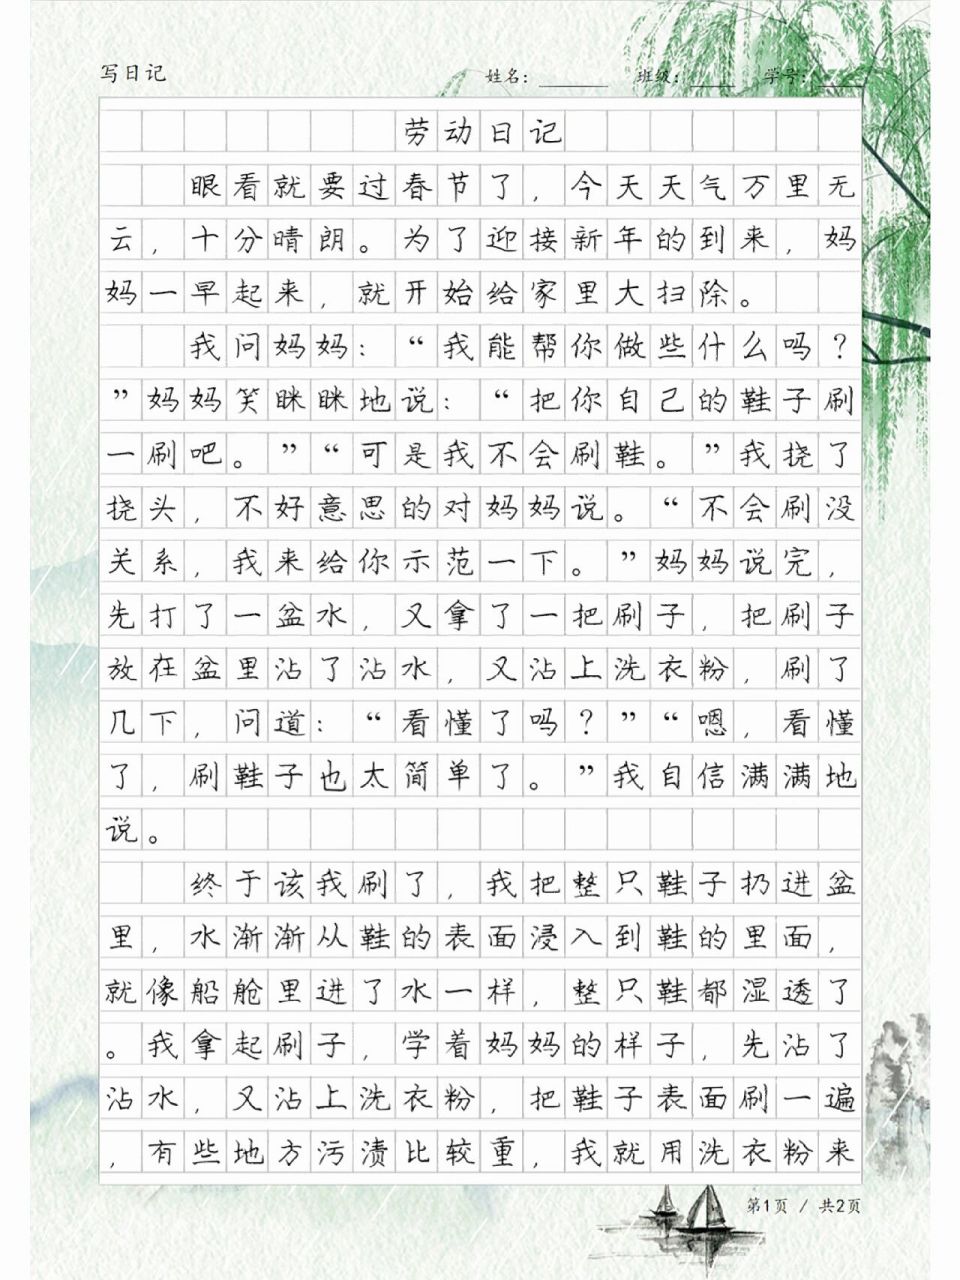 写日记 姓名: 班级: 学号:
劳动日记
眼看就要过春节了，今天天气万里无
云，十分晴朗。为了迎接新年的到来，妈
妈一早起来，就开始给家里大扫除。
我问妈妈：“我能帮你做些什么吗？
”妈妈笑眯眯地说：“把你自己的鞋子刷
一刷吧。”“可是我不会刷鞋。”我挠了
挠头，不好意思的对妈妈说。“不会刷没
关系，我来给你示范一下。”妈妈说完，
先打了一盆水，又拿了一把刷子，把刷子
放在盆里沾了沾水，又沾上洗衣粉，刷了
几下，问道：“看懂了吗？”“嗯，看懂
了，刷鞋子也太简单了。”我自信满满地
说。
终于该我刷了，我把整只鞋子扔进盆
里，水渐渐从鞋的表面浸入到鞋的里面，
就像船舱里进了水一样，整只鞋都湿透了
。我拿起刷子，学着妈妈的样子，先沾了
沾水，又沾上洗衣粉，把鞋子表面刷一遍
，有些地方污渍比较重，我就用洗衣粉来
第1页 / 共2页